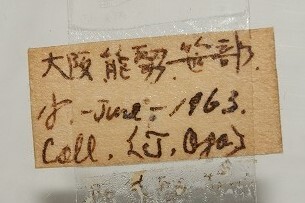 大阪 能勢 笹部.
15. -June - 1963.
Coll. {J. Oga}